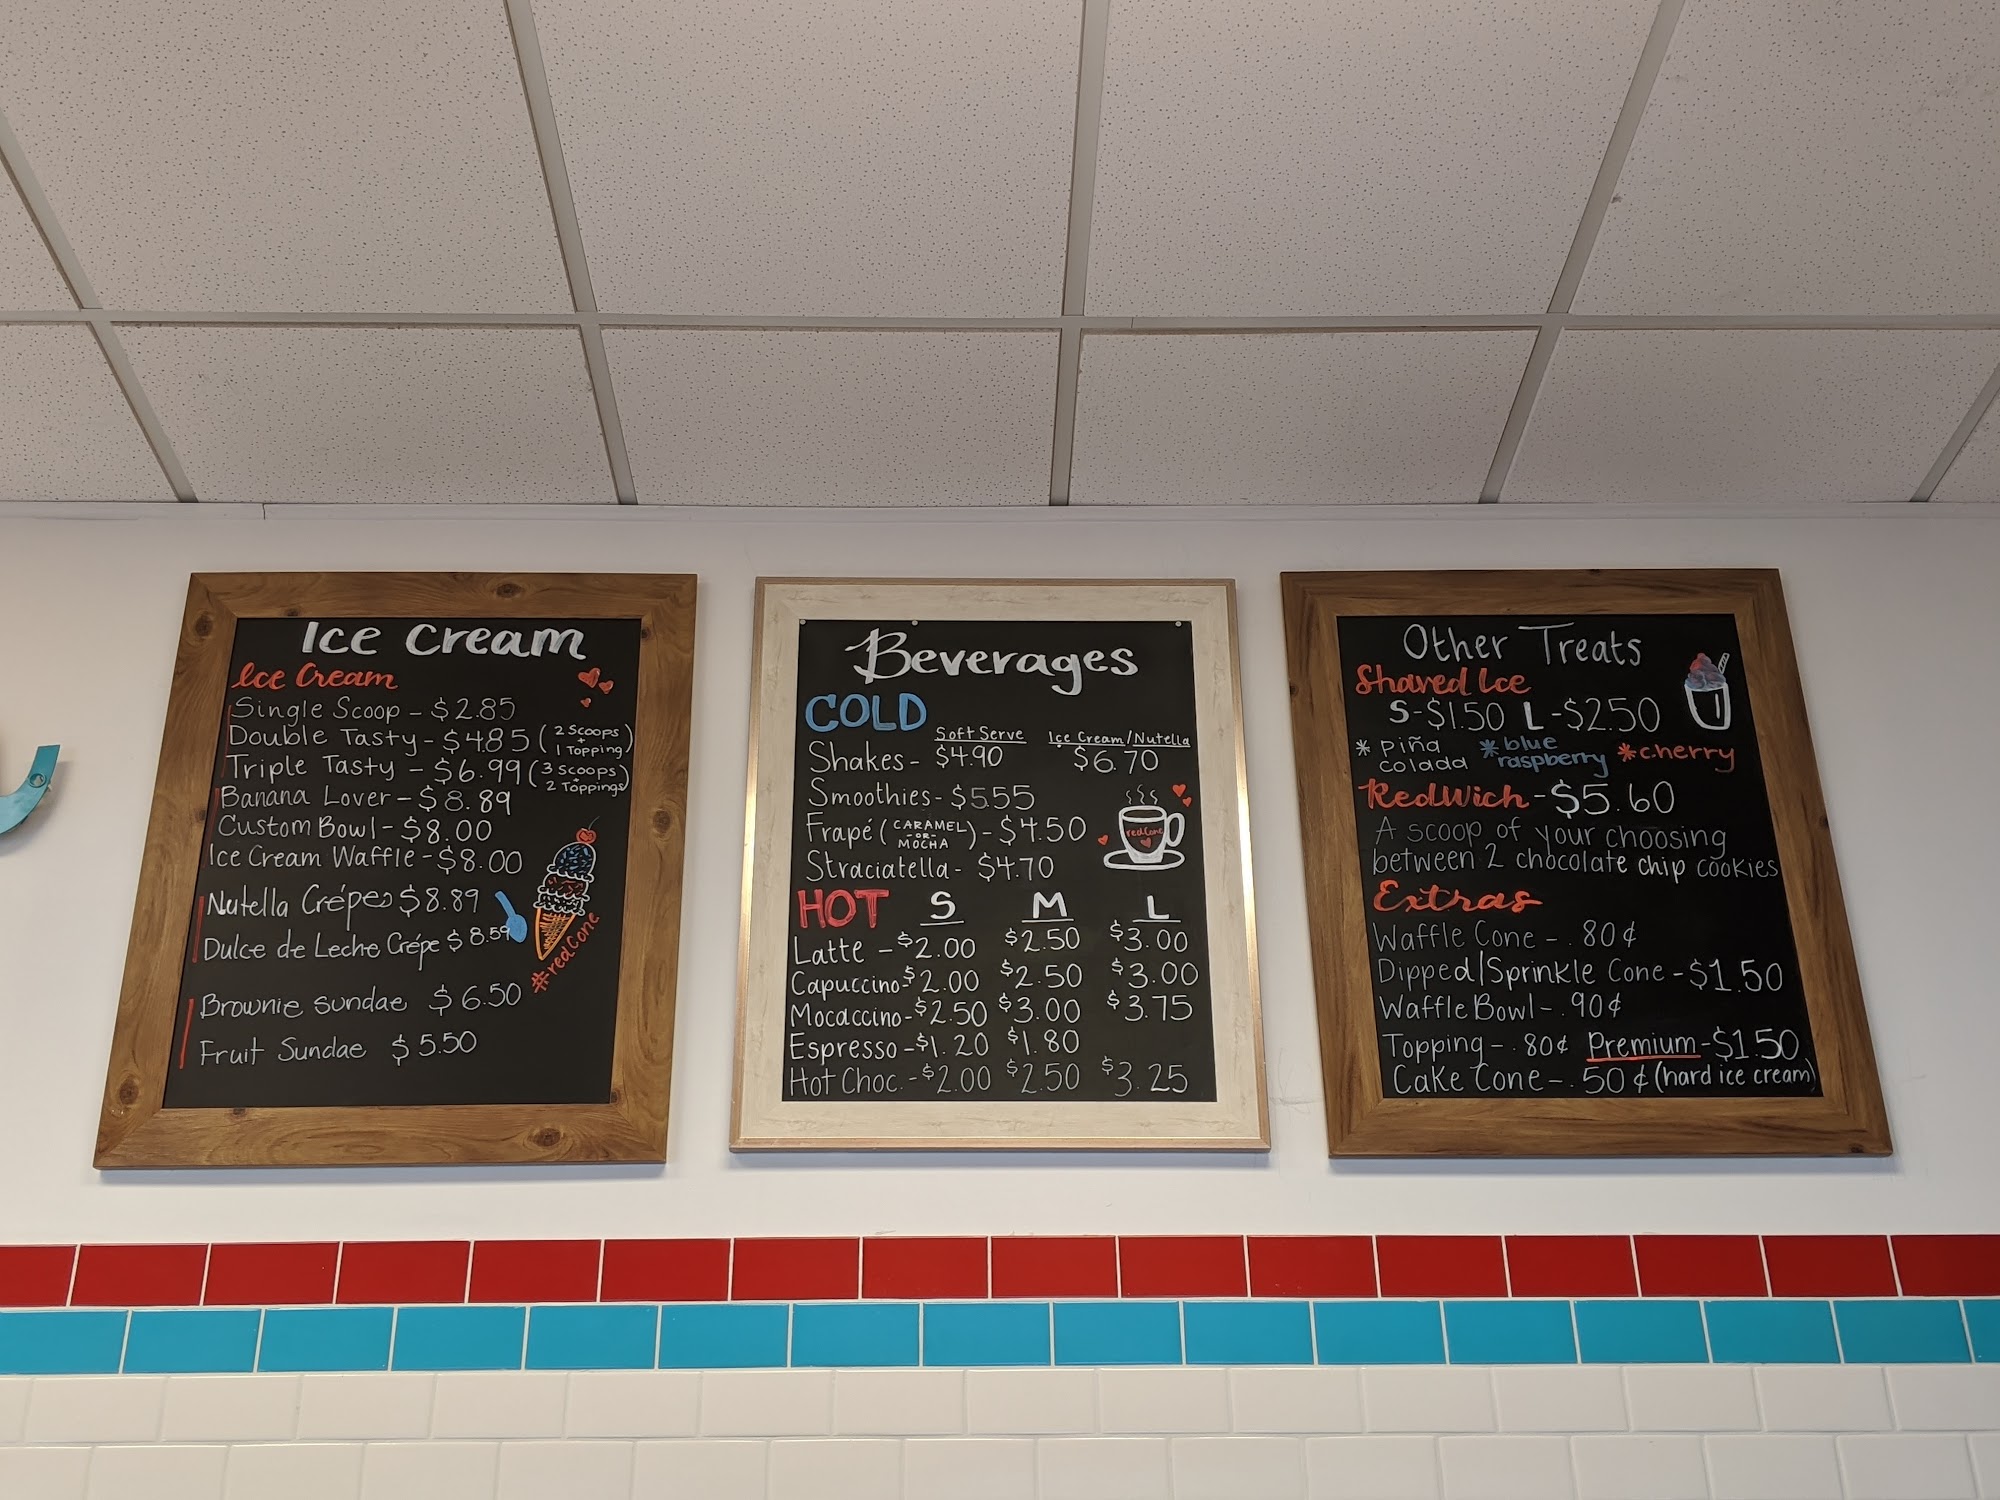 Ice Cream
Ice Cream
Single Scoop - $2.85
Double Tasty - $4.85 (2 Scoops + 1 Topping)
Triple Tasty - $6.99 (3 Scoops + 2 Toppings)
Banana Lover - $8.89
Custom Bowl - $8.00
Ice Cream Waffle - $8.00
Nutella Crépes $8.89
Dulce de Leche Crépe $8.59
#redCone
Brownie sundae $6.50
Fruit Sundae $5.50
Beverages
COLD
Soft Serve Ice Cream/Nutella
Shakes - $4.90 $6.70
Smoothies - $5.55
Frapé (CARAMEL -OR- MOCHA) - $4.50
redCone
Straciatella - $4.70
HOT S M L
Latte - $2.00 $2.50 $3.00
Capuccino - $2.00 $2.50 $3.00
Mocaccino - $2.50 $3.00 $3.75
Espresso - $1.20 $1.80
Hot Choc. - $2.00 $2.50 $3.25
Other Treats
Shaved Ice
S - $1.50 L - $2.50
* piña colada * blue raspberry * cherry
RedWich - $5.60
A scoop of your choosing
between 2 chocolate chip cookies
Extras
Waffle Cone - .80¢
Dipped/Sprinkle Cone - $1.50
Waffle Bowl - .90¢
Topping - .80¢ Premium - $1.50
Cake Cone - .50¢ (hard ice cream)